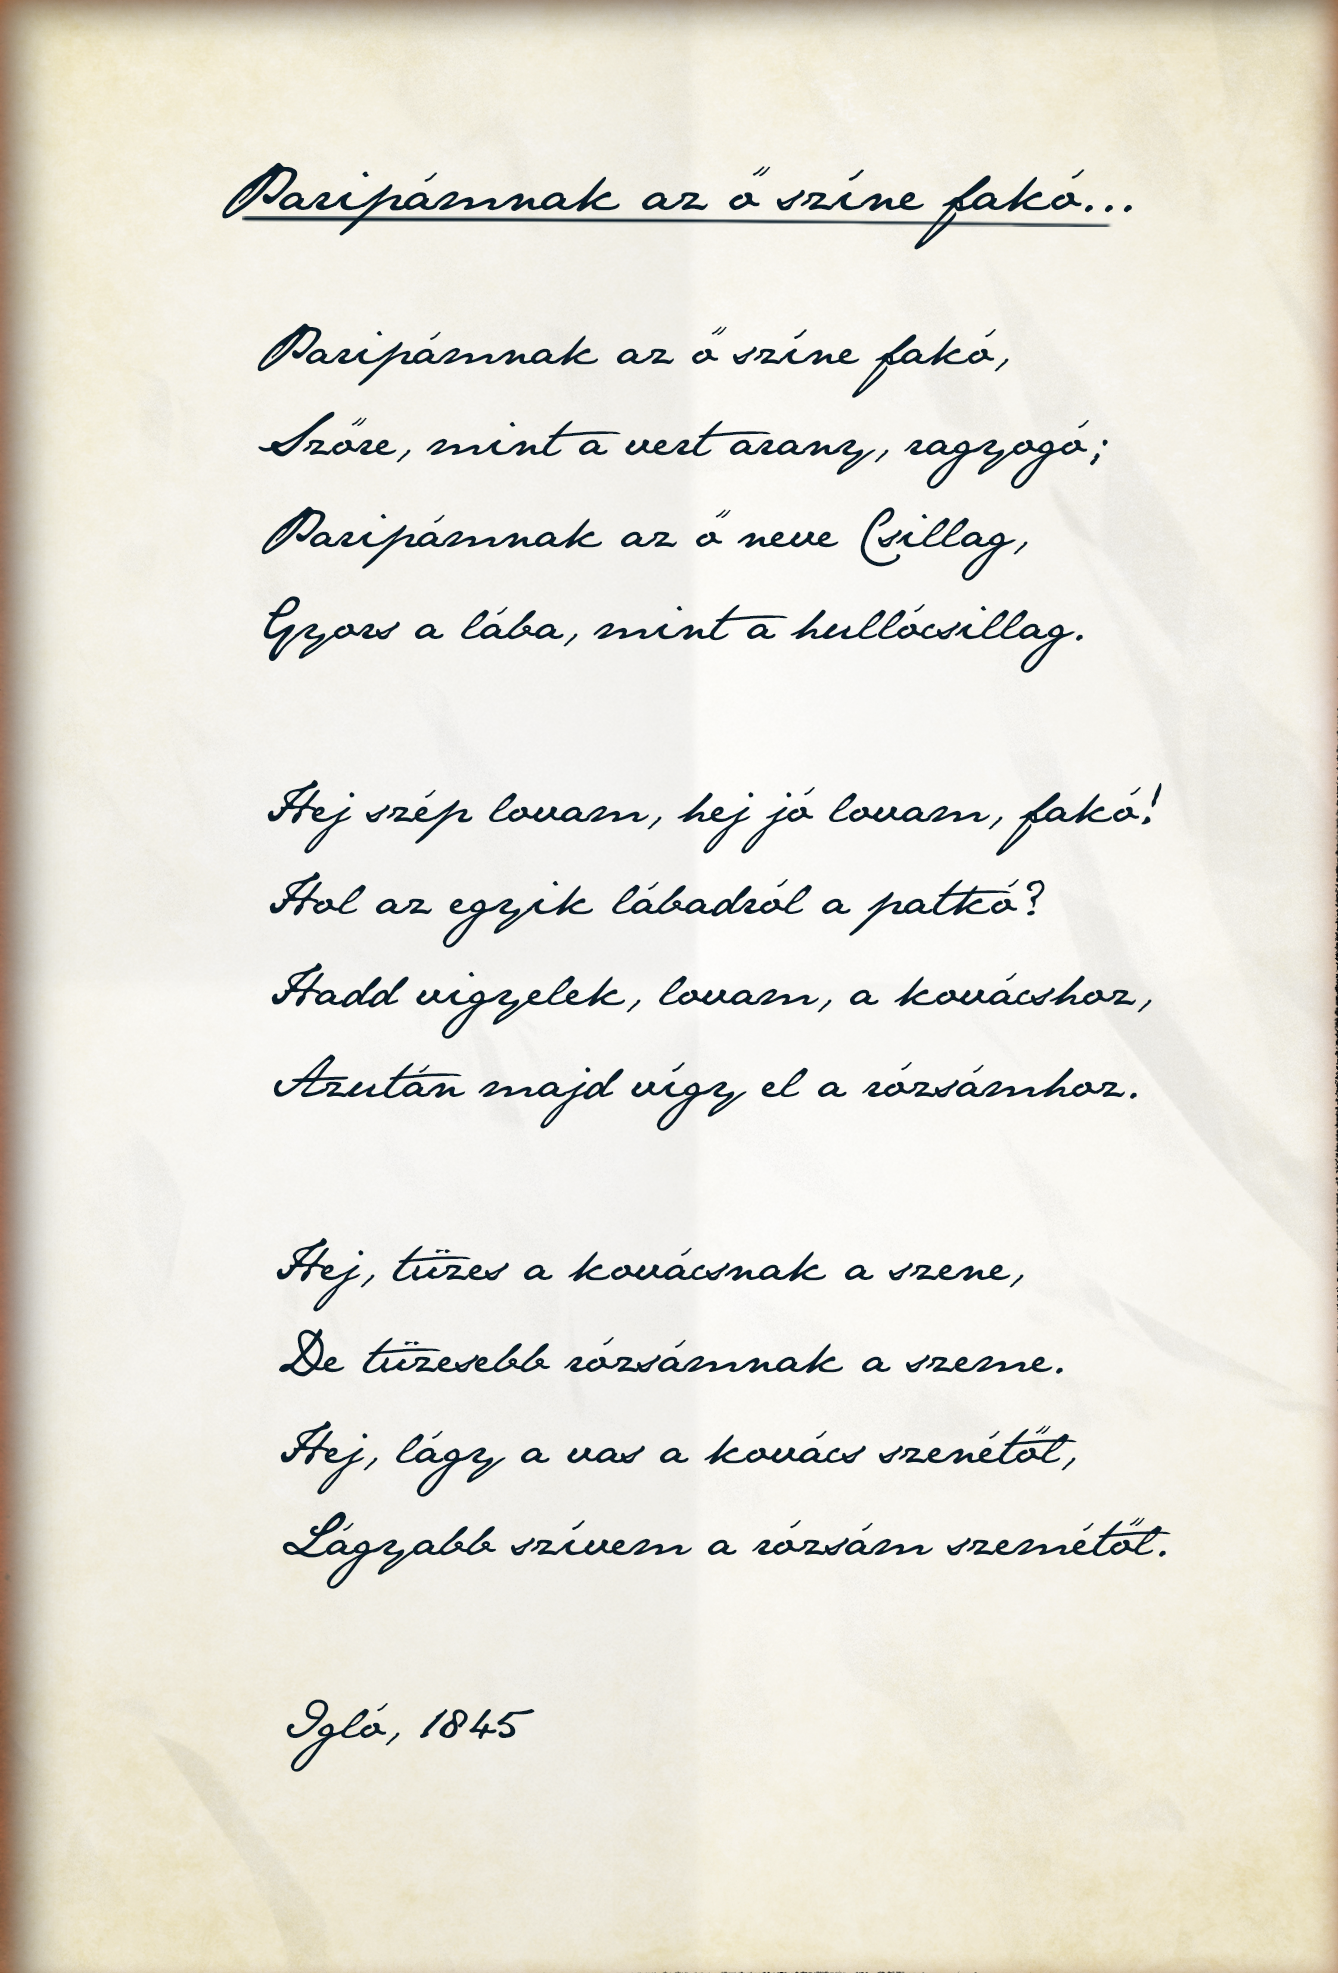 Paripámnak az ő színe fakó...
Paripámnak az ő színe fakó,
Szőre, mint a vert arany, ragyogó;
Paripámnak az ő neve Csillag,
Gyors a lába, mint a hullócsillag.
Hej szép lovam, hej jó lovam, fakó!
Hol az egyik lábadról a patkó?
Hadd vigyelek, lovam, a kovácshoz,
Azután majd vígy el a rózsámhoz.
Hej, tüzes a kovácsnak a szene,
De tüzesebb rózsámnak a szeme.
Hej, lágy a vas a kovács szenétől,
Lágyabb szívem a rózsám szemétől.
Igló, 1845